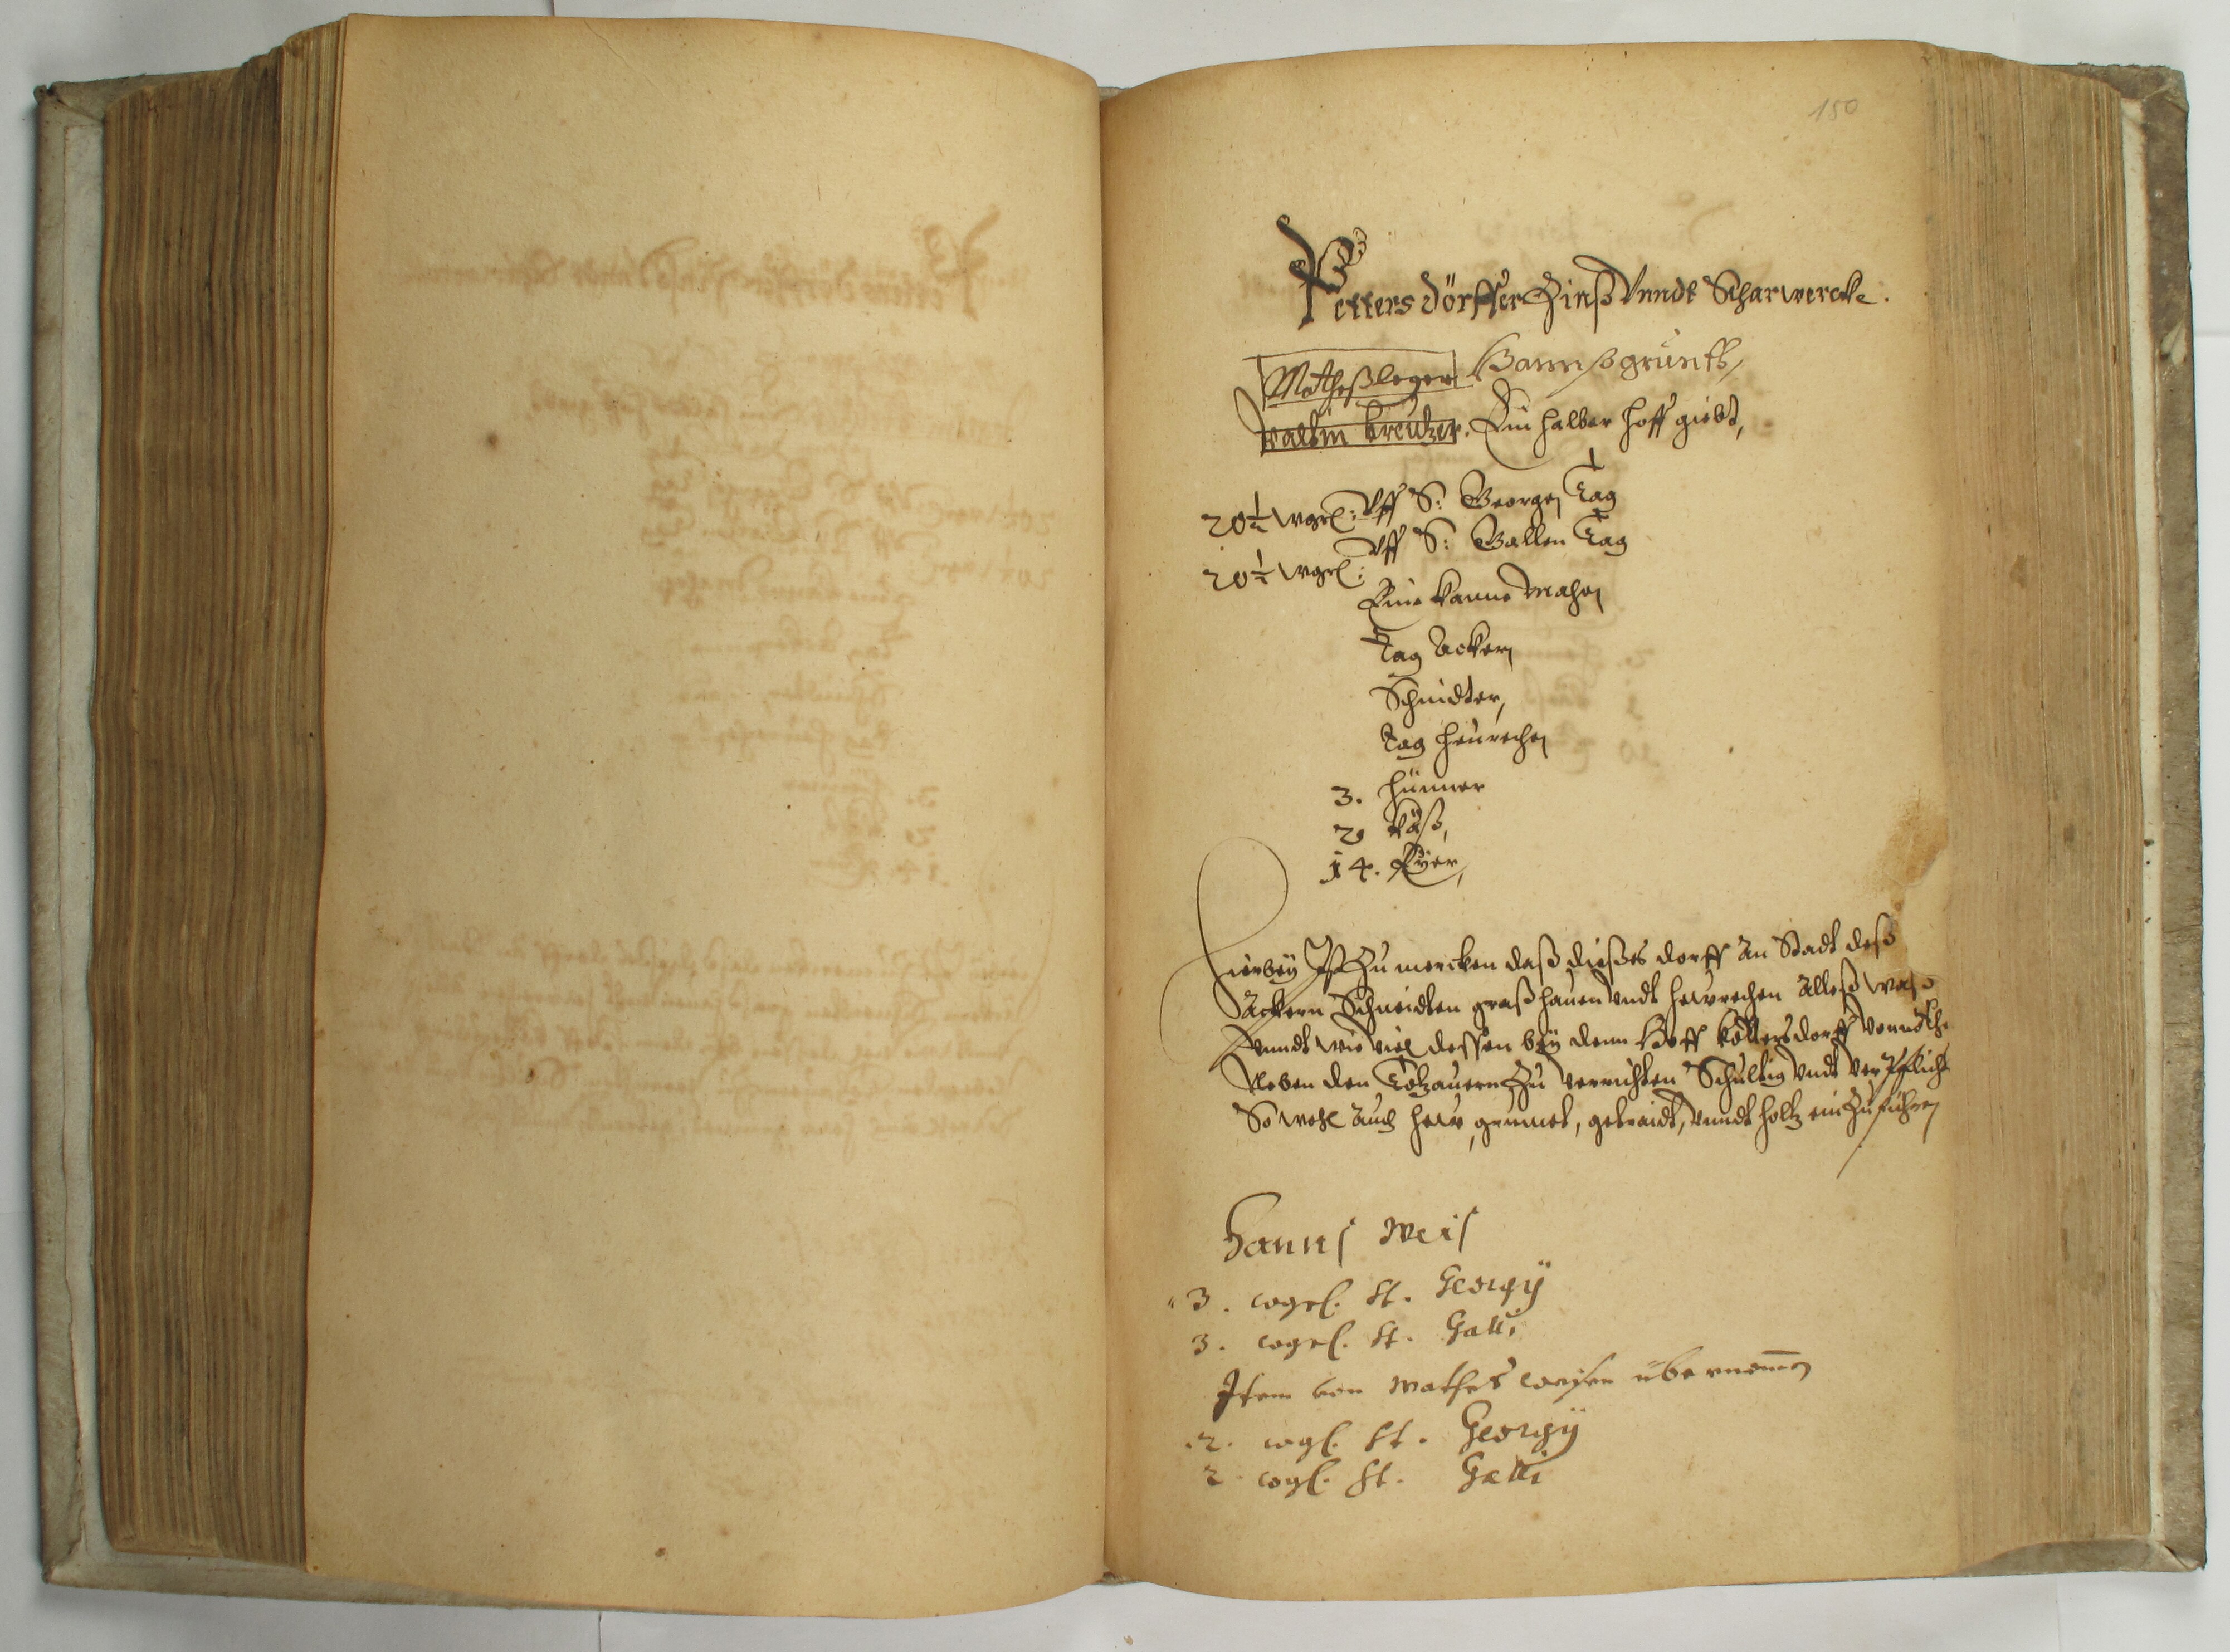 150
Pettersdörffer Zinß Vnndt Scharwercke.
Matheß leger Hannß grünth,
Valtin Kreützer. Ein halber hoff giebt,
20½ wgrl: Vff S: Georgen Tag
20½ wgrl: Vff S: Gallen Tag
Eine Kanne Mahen
Tag Ackern
Schnidter,
Tag heurechen
3. hünner
2 Käß,
14. Eyer,
Hierbey Ist Zu mercken daß dießes dorff An Stadt deß
Ackern Schneidten graßhauen Vndt hewrechen Alleß waß
Vnndt wie viel dessen bey dem Hoff Köttersdorff
Neben den Zu verrichten Schuldig Vndt Verpflicht
So wohl Auch hew, grumet, getraidt, Vnndt holtz ein Zu führen
Hanns Weis
3. wgrl. St. Georgÿ
3. wgrl. St. Galli
Item von Mathes weisen übernomen
2. wgl. St. Georgÿ
2. wgl. St. Galli